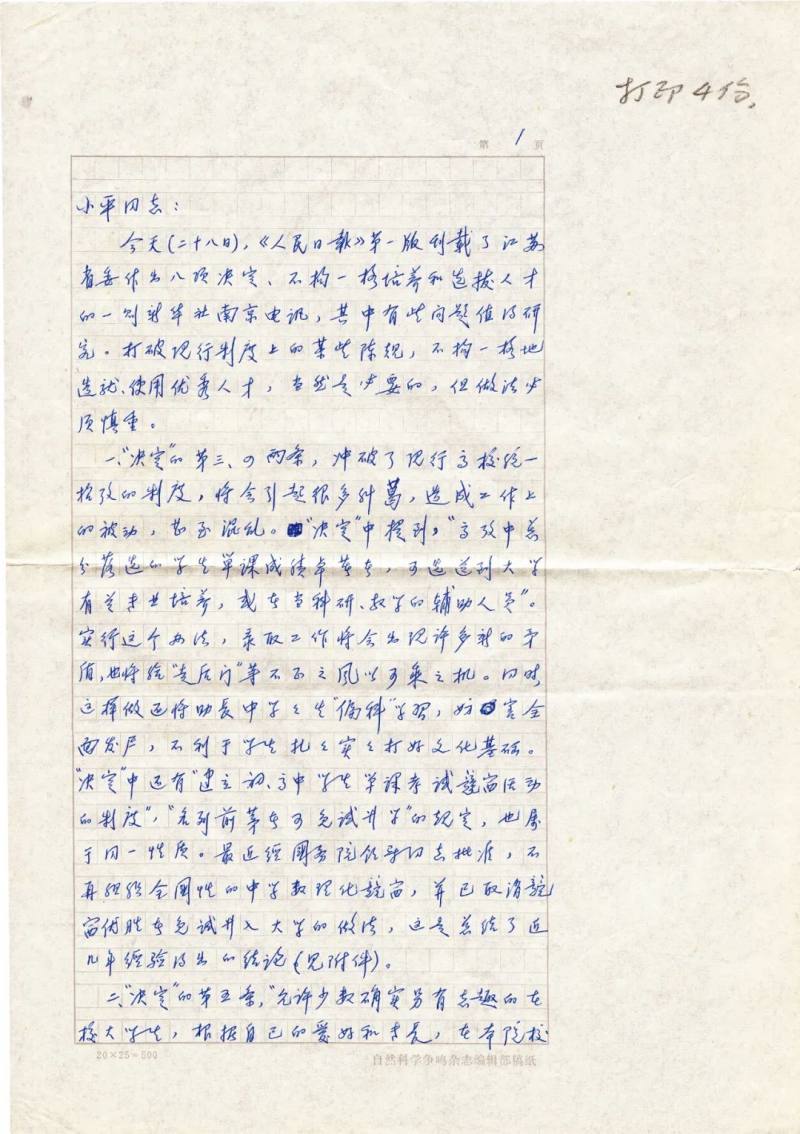 打印4份。
第 1 页
小平同志：
今天(二十八日)，《人民日報》第一版刊载了江苏
省委作出八项决定、不拘一格培养和选拔人才
的一则新华社南京电讯，其中有些问题值得研
究。打破现行制度上的某些陈规，不拘一格地
造就、使用优秀人才，当然是必要的，但做法必
须慎重。
一、“决定”的第三、四两条，冲破了现行高校统一
招考的制度，将会引起很多纠葛，造成工作上
的被动，甚至混乱。“决定”中提到，“高考中总
分落选的学生单课成绩卓著者，可选送到大学
有关专业培养，或者当科研、教学的辅助人员”。
实行这个办法，录取工作将会出现许多新的矛
盾，也将给“走后门”等不正之风以可乘之机。同时，
这样做还将助长中学学生“偏科”学習，妨害全
面发展，不利于学生扎扎实实打好文化基础。
“决定”中还有“建立初、高中学生单课考试競赛活动
的制度”，“名列前茅者可免试升学”的规定，也属
于同一性质。最近經國务院领导同志批准，不
再组织全國性的中学数理化競赛，并已取消競
赛优胜者免试升入大学的做法，这是总结了近
几年经验得出的结论(见附件)。
二、“决定”的第五条，“允许少数确实另有志趣的在
校大学生，根据自己的爱好和专长，在本院校
20×25=500
自然科学争鸣杂志编辑部稿纸